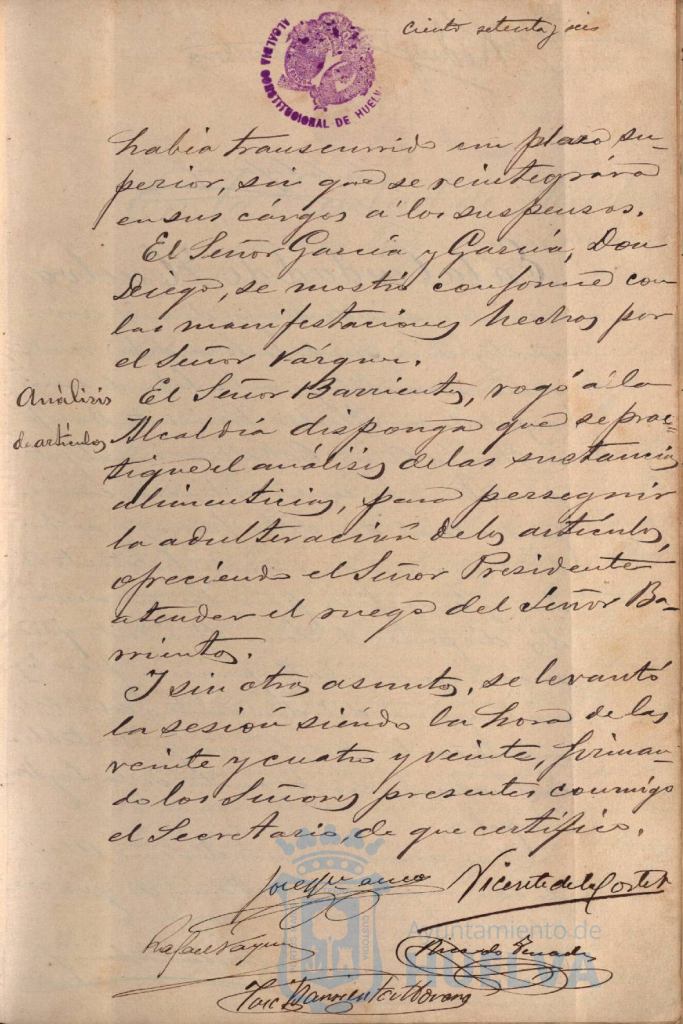 ciento setenta y seis
ALCALDIA CONSTITUCIONAL DE HUELVA
había transcurrido un plazo su-
perior, sin que se reintegrára
en sus cárgos á los suspensos.
El Señor García y García, Don
Diego, se mostró conforme con
las manifestaciones hechas por
el Señor Vázquez.
Análisis
de artículos
El Señor Barrientos, rogó á la
Alcaldía disponga que se prac-
tique el análisis de las sustancias
alimenticias, para perseguir
la adulteración de los artículos,
ofreciendo el Señor Presidente
atender el ruego del Señor Ba-
rriento.
I sin otro asunto, se levantó
la sesión siéndo la hora de las
veinte y cuatro y veinte, firman-
do los Señores presentes conmigo
el Secretario, de que certifico.
Vicente de la Corte
Rafael Vázquez
Ayuntamiento de
HUELVA
José Barrientos Moreno